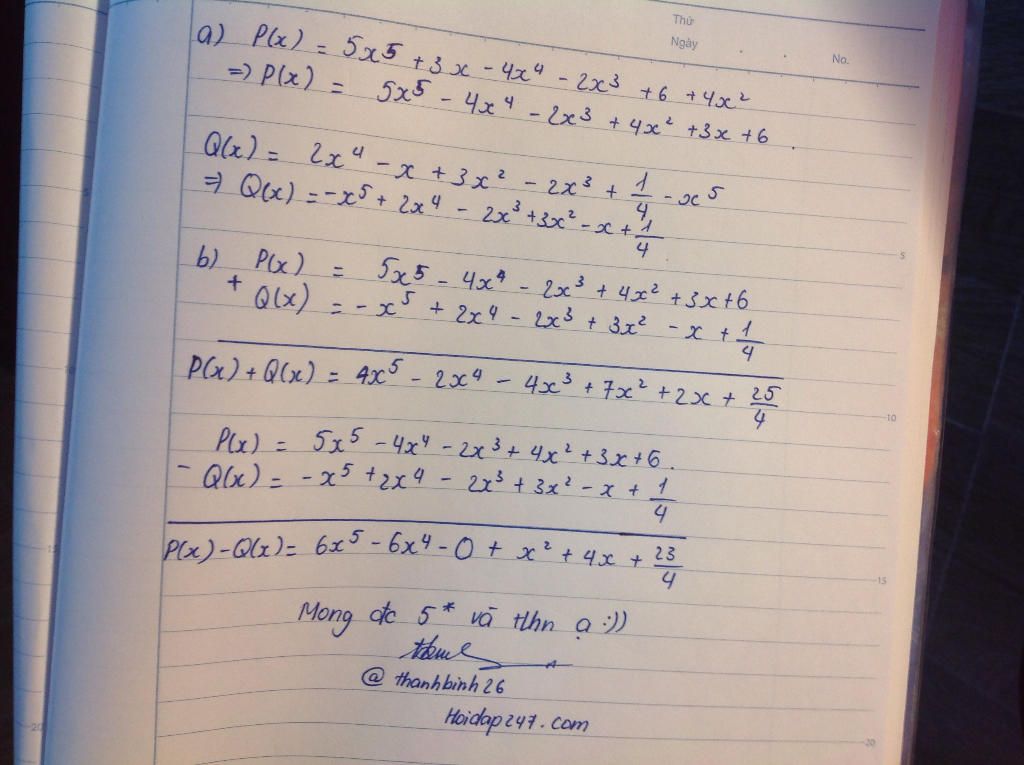 Thứ
Ngày . . No.
a) P(x) = 5x⁵ + 3x - 4x⁴ - 2x³ + 6 + 4x²
=> P(x) = 5x⁵ - 4x⁴ - 2x³ + 4x² + 3x + 6 .
Q(x) = 2x⁴ - x + 3x² - 2x³ + 1/4 - x⁵
=> Q(x) = -x⁵ + 2x⁴ - 2x³ + 3x² - x + 1/4
5
b) P(x) = 5x⁵ - 4x⁴ - 2x³ + 4x² + 3x + 6
+ Q(x) = -x⁵ + 2x⁴ - 2x³ + 3x² - x + 1/4
P(x) + Q(x) = 4x⁵ - 2x⁴ - 4x³ + 7x² + 2x + 25/4
10
P(x) = 5x⁵ - 4x⁴ - 2x³ + 4x² + 3x + 6 .
- Q(x) = -x⁵ + 2x⁴ - 2x³ + 3x² - x + 1/4
P(x) - Q(x) = 6x⁵ - 6x⁴ - 0 + x² + 4x + 23/4
15
Mong đc 5* và tlhn ạ :))
@ thanhbinh26
Hoidap247.com
20
20